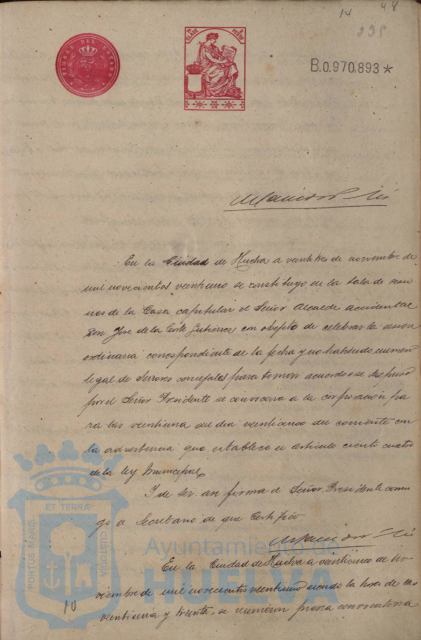 14 48
235
B.0.970.893*
En la Ciudad de Huelva a veintitres de noviembre de
mil novecientos veintiuno se constituyo en la Sala de sesio
nes de la Casa capitular el Señor Alcalde accidental
Don Jose de la Corte Gutierrez con objeto de celebrar la sesion
ordinaria correspondiente de la fecha y no habiendo numero
legal de Señores concejales para tomar acuerdo se dispuso
por el Señor Presidente se convocara a la corporacion pa
ra las veintiuna del dia veinticinco del corriente con
la advertencia que establece el articulo ciento cuatro
de la ley Municipal.
Y de ser asi firma el Señor Presidente conmi
go el Secretario de que Certifico
En la Ciudad de Huelva a veinticinco de no
viembre de mil novecientos veintiuno siendo la hora de las
veintiuna y treinta, se reunieron previa convocatoria
10
Ayuntamiento de
HUELVA
PORTUS MARIS
ET TERRAE
CUSTODIA